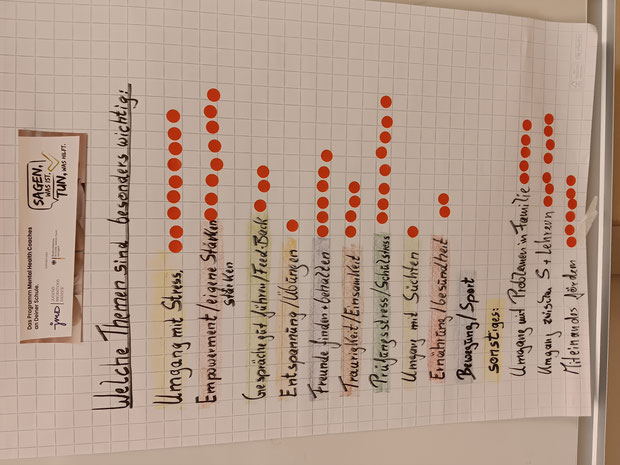 SAGEN,
WAS IST.
TUN,
WAS HILFT.
Das Programm Mental Health Coaches
an Deiner Schule.
jmd
Welche Themen sind besonders wichtig:
Umgang mit Stress,
Empowerment/eigene Stärken
stärken
Gespräche gut führen/Feed-Back
Entspannung/Übungen
Freunde finden + behalten
Traurigkeit/Einsamkeit
Prüfungsstress/Schulstress
Umgang mit Süchten
Ernährung/Gesundheit
Bewegung/Sport
sonstiges:
Umgang mit Problemen in Familie
Umgang zwischen S + Lehrern
Miteinander fördern